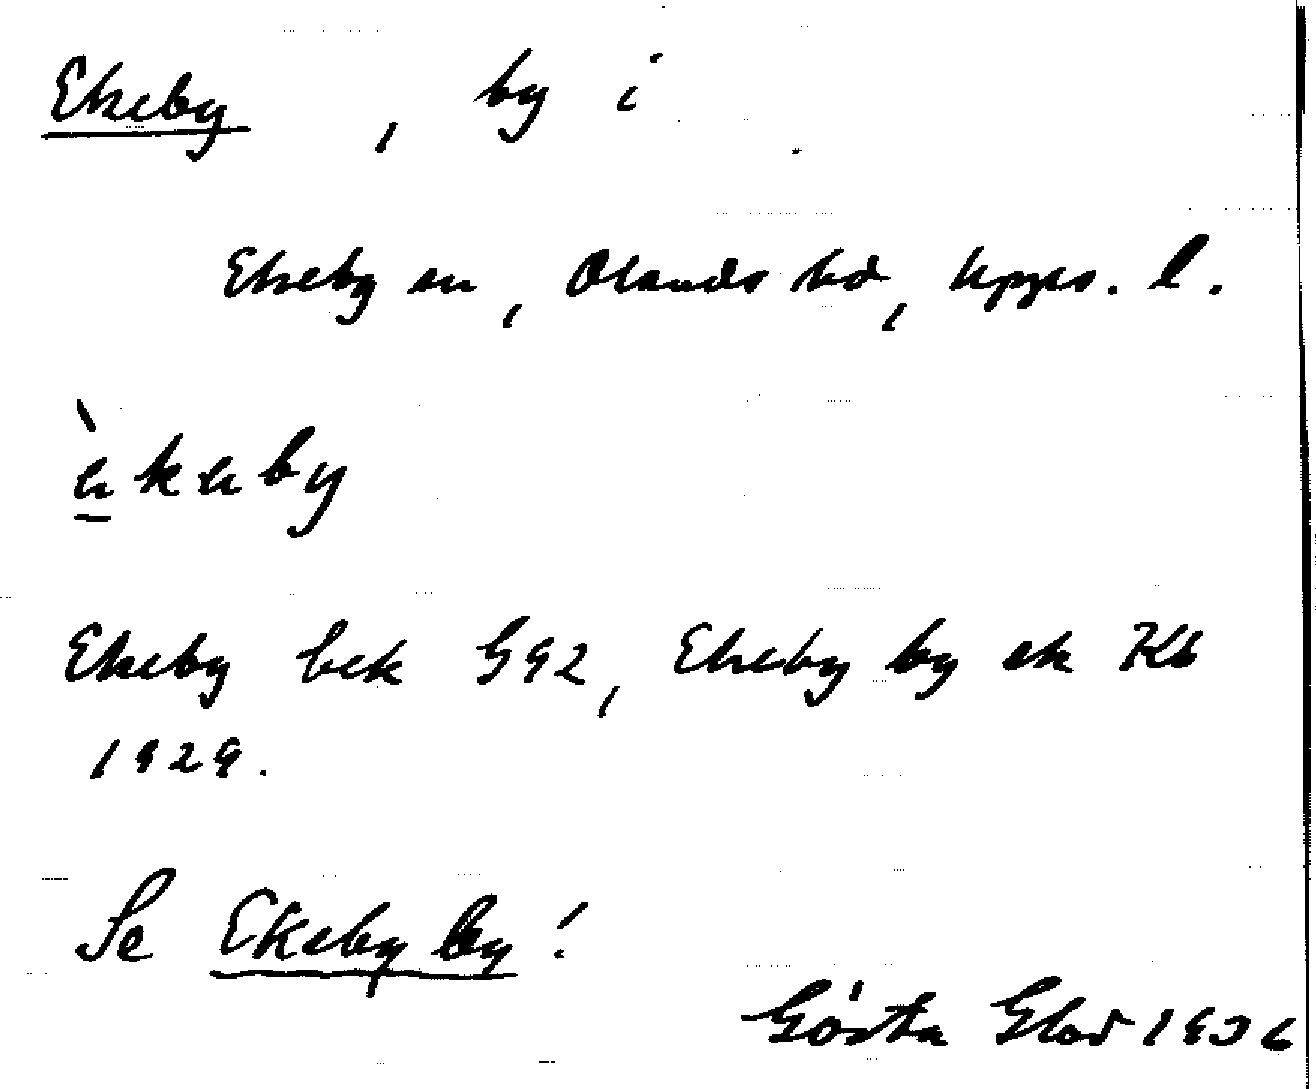 Ekeby, by i
Ekeby sn, Olands hd, Upps. l.
èkeby
Ekeby bek G92, Ekeby by ek Kb
1929.
Se Ekeby by!
Gösta 1936